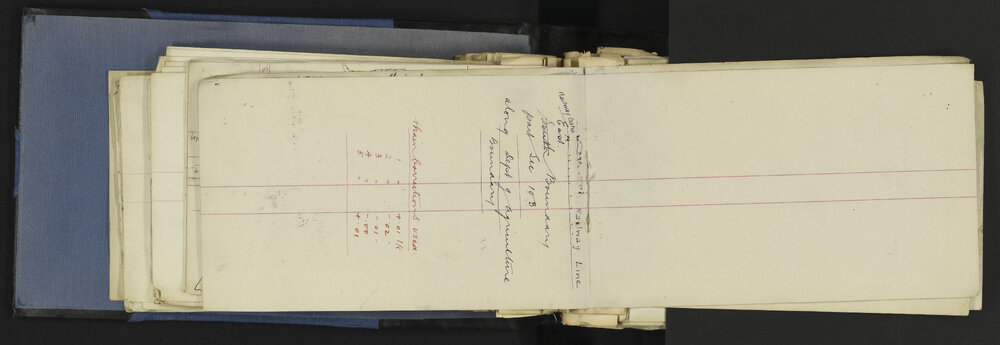 Railway Line
Railway
East
South Boundary
part Sec 103
along Dept of Agriculture
Boundary
Chain Corrections used.
1 " + 01 lk
2 " - 02 "
3 " - 01 "
4 " - 00
5 " + 01